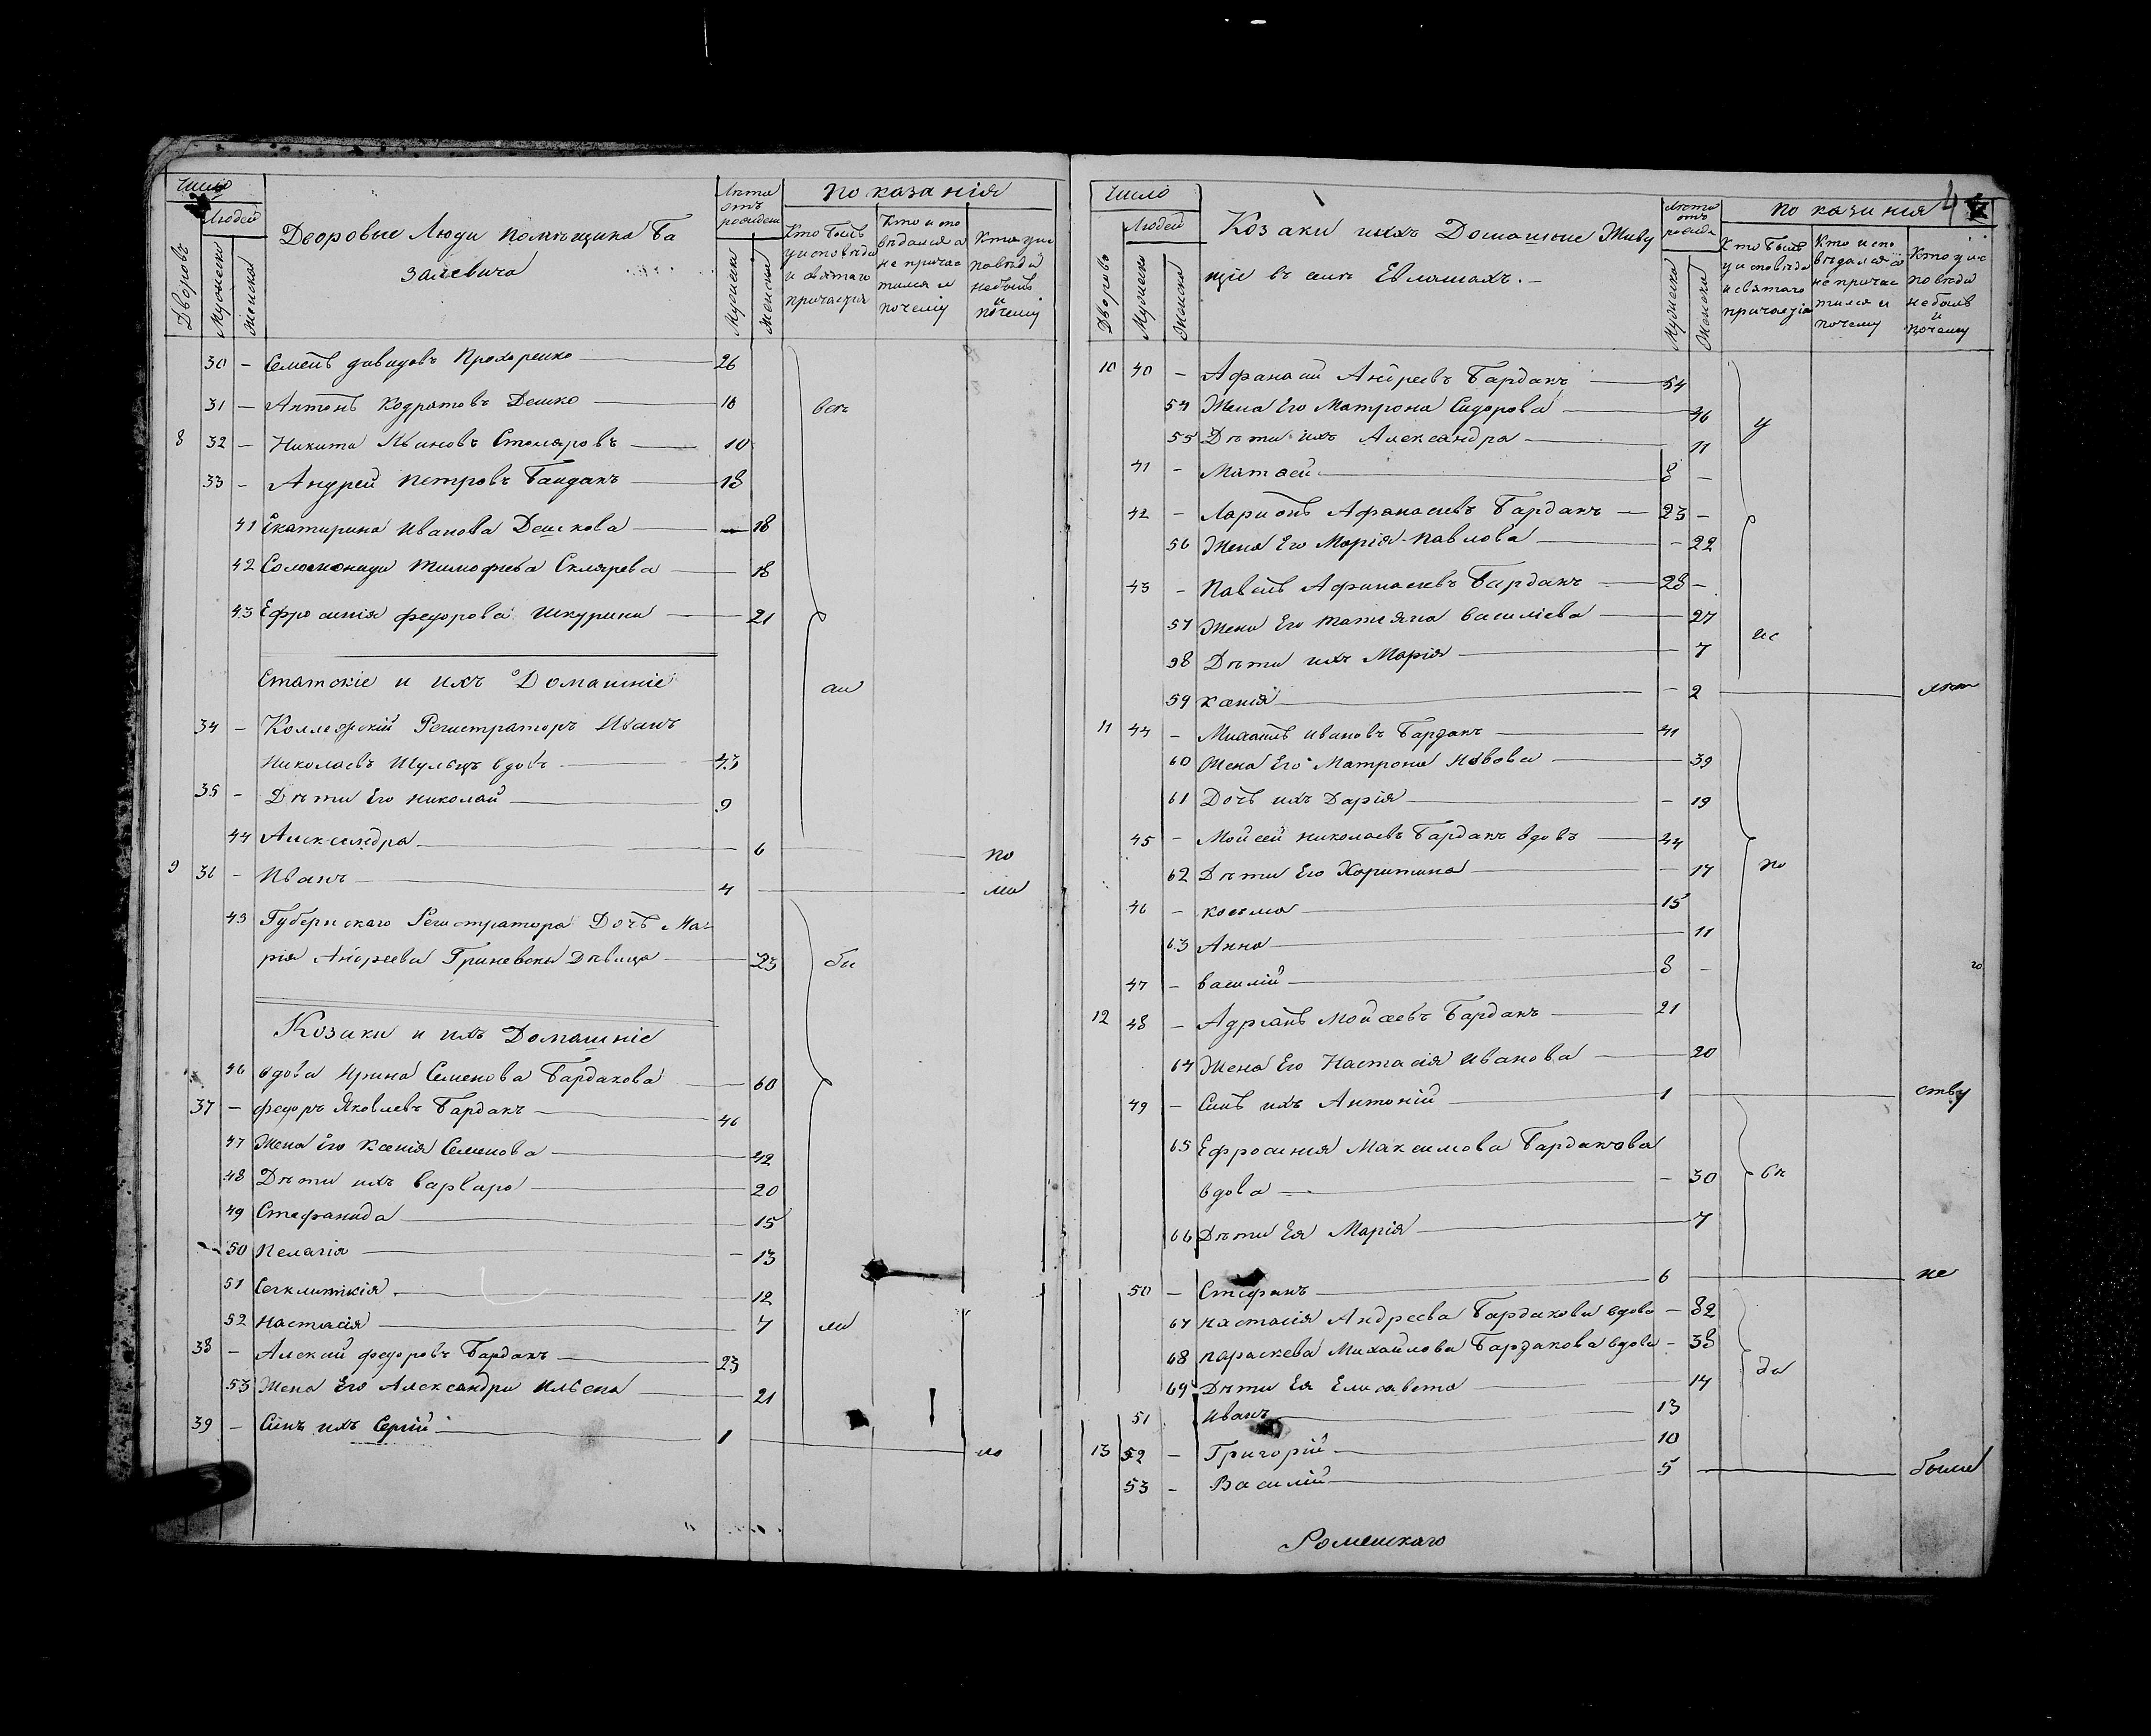 Число
Людей
Дворовъ
Мужеска
Женска
Дворовые Люди помѣщика Ба
залевича
Лѣта отъ рожденія
Мужеска
Женска
показанія
Кто былъ у исповѣди и святаго причастія
Кто исповѣдался а не причастился и почему
Кто у исповѣди не былъ и почему
30 — Семенъ давидовъ Прохоренко 26
31 — Антонъ Кодратовъ Дешко 18
всѣ
8 32 — Никита Ивановъ Столяровъ 10
33 — Андрей петровъ Гайдакъ 18
41 Екатирина Иванова Дешкова — 18
42 Соломонида Тимофиева Склярева 18
43 Ефросинія федорова Шкурина 21
Статскіе и ихъ Домашніе
сии
34 — Коллежскій Регистраторъ Иванъ
Николаевъ Шульцъ вдовъ 43
35 — Дѣти Его николай 9
44 Александра 6 по
9 36 — Иванъ 4 ма
45 Губернскаго Регистратора Дочь Ма-
рія Андреева Гриневска Дѣвица 23 бы
Козаки и ихъ Домашніе
46 вдова Ирина Семенова Бардакова 60
37 — федоръ Яковлевъ Бардакъ 46
47 Жена Его Ксенія Семенова 42
48 Дѣти ихъ варвара 20
49 Стефанида 15
50 пелагія — 13
51 Сегклитикія 12
52 настасія 7 ли
38 — Алексій федоровъ Бардакъ 23
53 Жена Его Александра Ильена 21
39 — Синъ ихъ Сергій 1 ло
Число
Людей
Дворовъ
Мужеска
Женска
Козаки ихъ Домашние Живу
щіе въ селѣ Евлашахъ. —
Лѣта отъ рожде
Мужеска
Женска
показанія 4
Кто былъ у исповѣди и святаго причастія
Кто исповѣдался а не причастился и почему
Кто у исповѣди не былъ и почему
10 40 — Афанасій Андреевъ Бардакъ 54
54 Жена Его Матрона Сидорова 46
у
55 Дѣти ихъ Александра 11
41 — Матвей 8 —
42 — Ларионъ Афанасиевъ Бардакъ — 23 —
56 Жена Его Марія павлова — 22
43 — Павелъ Афанасиевъ Бардакъ 28 —
57 Жена Его татияна василиева 27
ис
58 Дѣти ихъ Марія 7
59 ксенія — 2
11 44 — Михаилъ ивановъ Бардакъ 41
60 Жена Его Матрона 39
61 Дочь ихъ Дарія — 19
45 — Мойсей николаевъ Бардакъ вдовъ 44
62 Дѣти Его Харитина — 17 по
46 — косьма 15
63 Анна 11
47 — василій 8 —
12 48 — Адріанъ Мойсеевъ Бардакъ 21
64 Жена Его Настасія Иванова 20
49 — Синъ ихъ Антоній 1 ству
65 Ефросиния Максимова Бардакова
вдова — 30 вѣ
66 Дѣти Ея Марія 7
50 — Стефанъ 6 не
67 настасія Андреева Бардакова вдова — 82
68 параскева Михайлова Бардакова вдова — 38
69 Дѣти Ея Елисавета 14 ди
51 иванъ 13
13 52 — Григорій 10
53 — Василій 5 были
Роменскаго